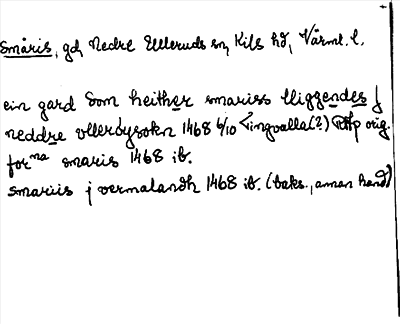 Småris, gd, Nedre Ulleruds sn, Kils hd, Värml. l.
ein gard som heither smariss lliggendes j
neddre vllerøysokn 1468 6/10 Lingvalla(?) RAp orig.
for^na smaris 1468 ib.
smariis j vermalandh 1468 ib. (baks., annan hand)